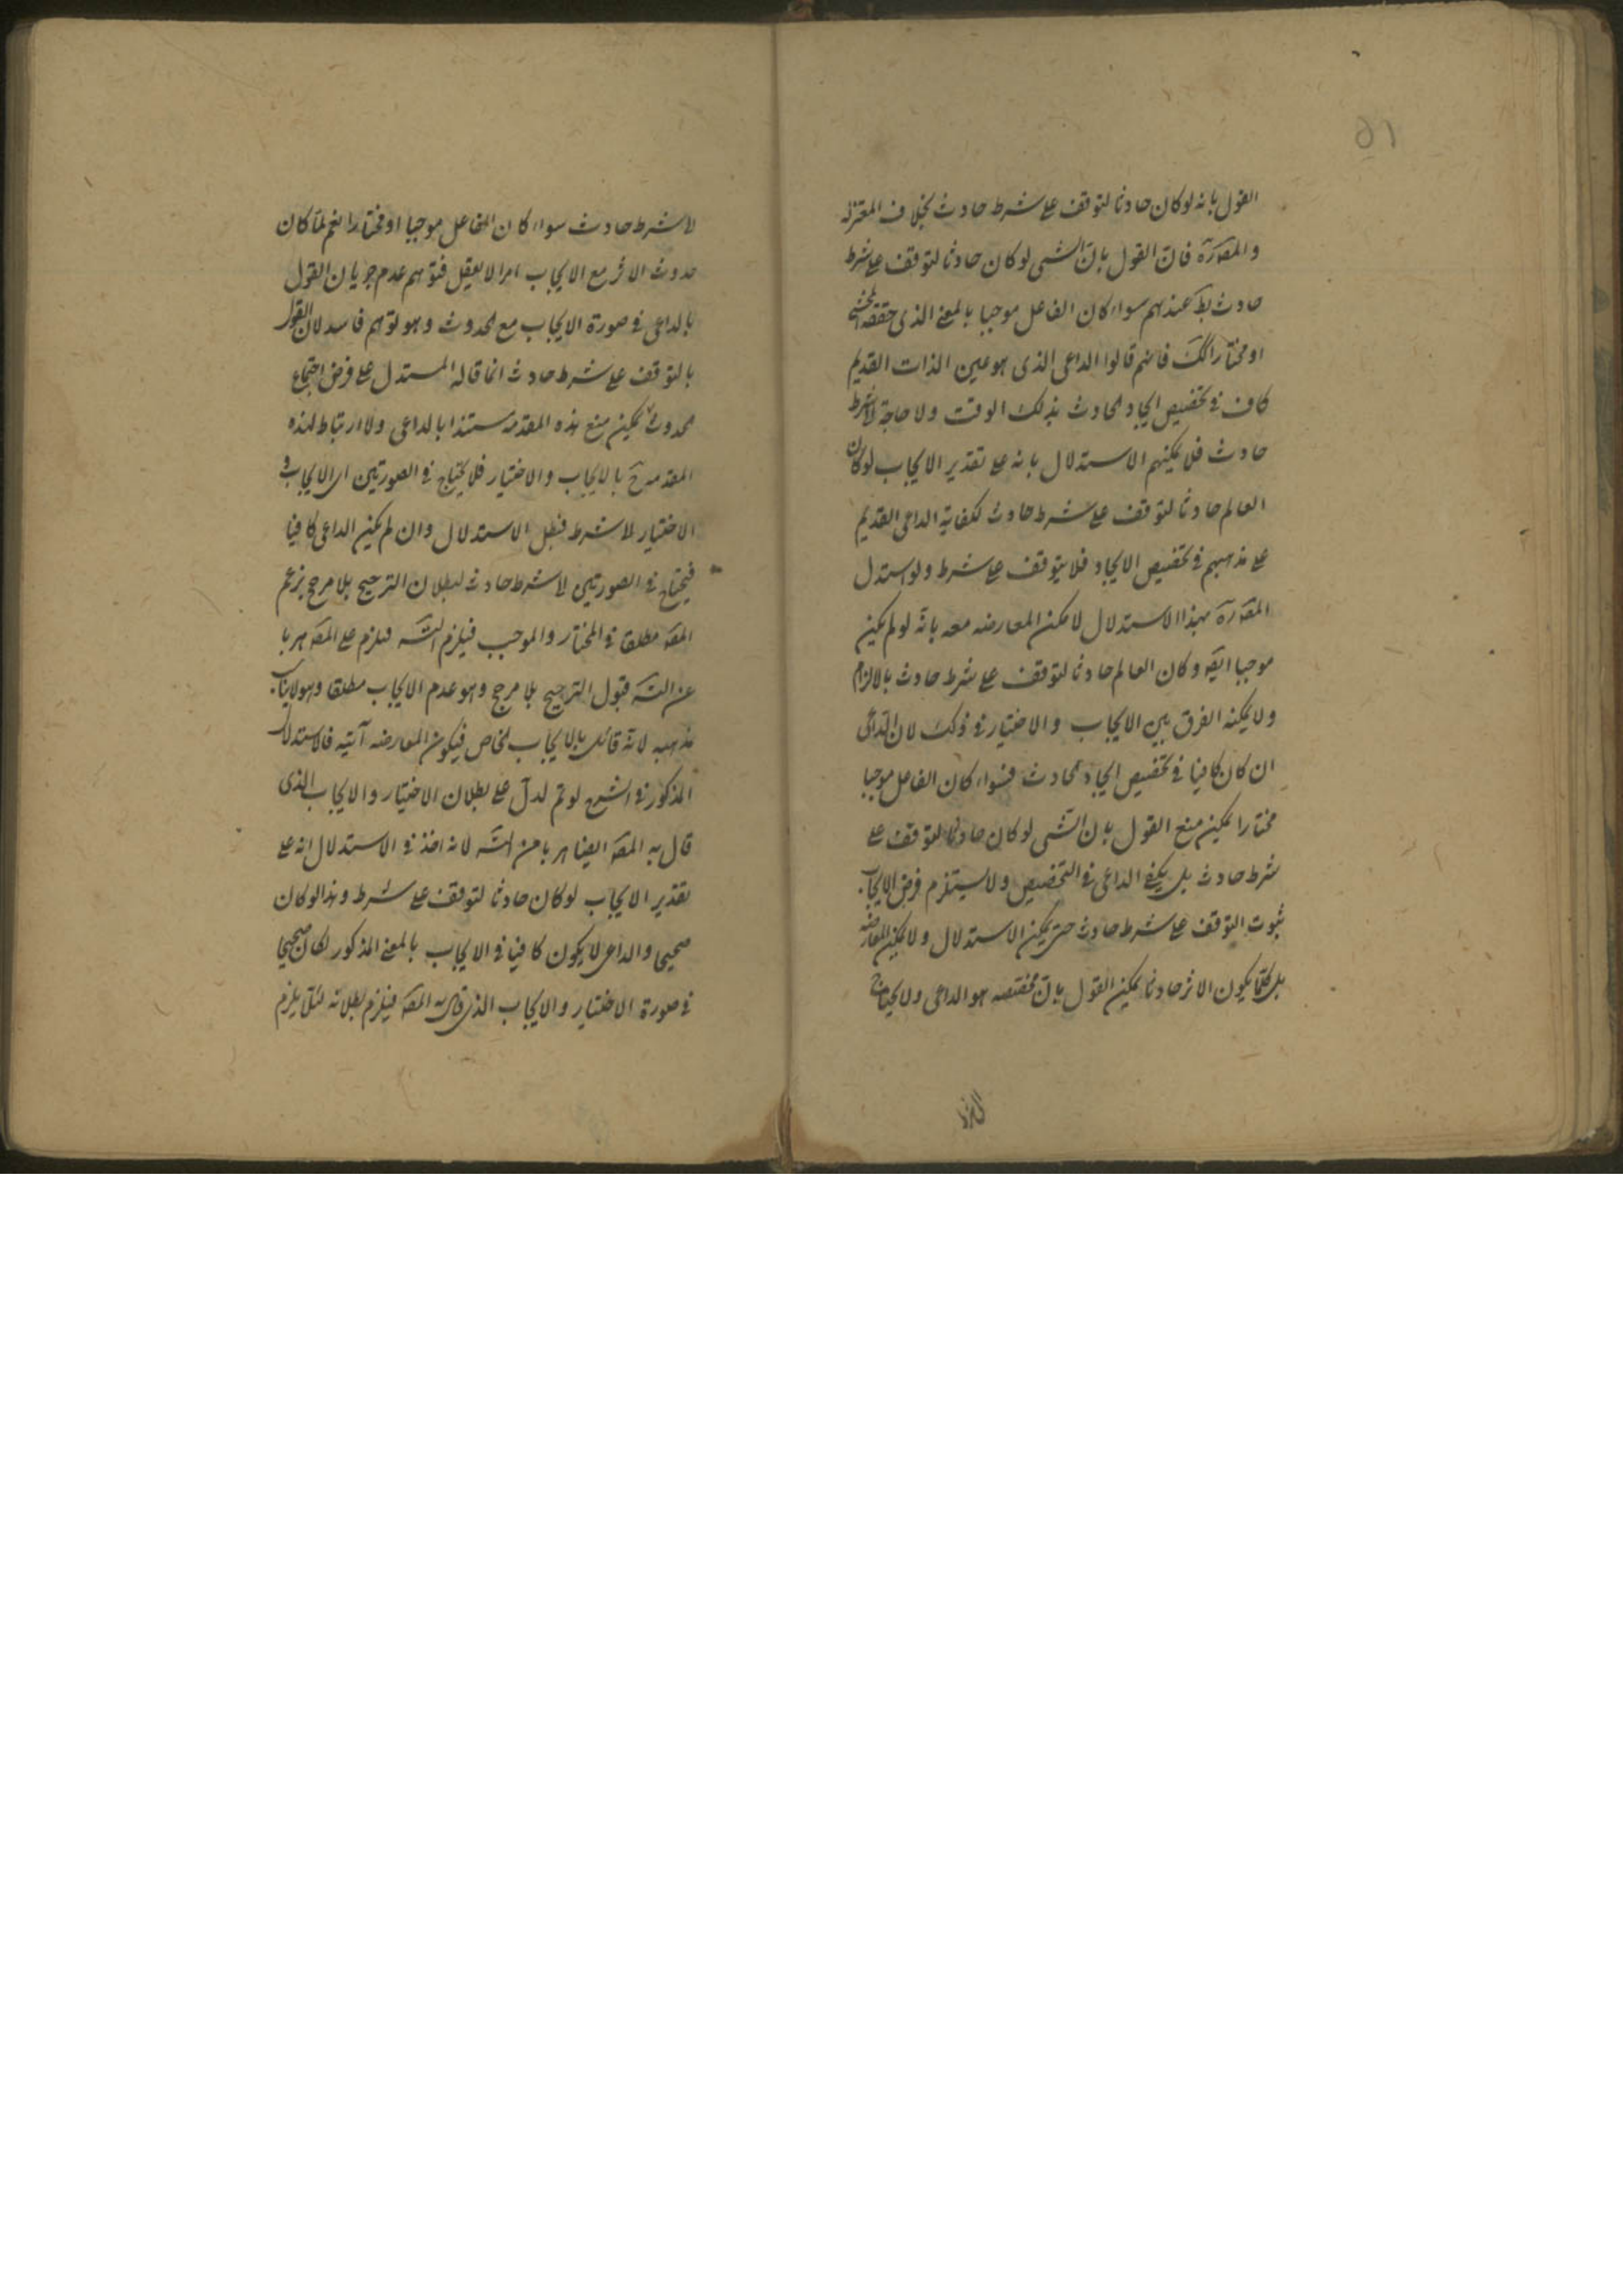 ٥١
القول بانه لو كان حادثا لتوقف على شرط حادث بخلاف المعتزله
والمصَ رَه فان القول بان الشى لو كان حادثا لتوقف على شرط
حادث بط عندهم سواء كان الفاعل موجبا بالمعنى الذى حققه المحشى
او مختارا لكَ فانهم قالوا الداعى الذى هو عين الذات القديم
كاف فى تخصيص ايجاد الحادث بذلك الوقت ولا حاجة لا شرط
حادث فلا يمكنهم الاستدلال بانه على تقدير الايجاب لو كان
العالم حادثا لتوقف على شرط حادث لكفاية الداعى القديم
على مذهبهم فى تخصيص الايجاد فلا يتوقف على شرط ولو استدل
المصَ رَه بهذا الاستدلال لامكن المعارضه معه بانه لو لم يكن
موجبا ايضَ وكان العالم حادثا لتوقف على شرط حادث بالالزام
ولا يمكنه الفرق بين الايجاب والاختيار فى ذلك لان الداعى
ان كان كافيا فى تخصيص ايجاد الحادث فسواء كان الفاعل موجبا
مختارا يمكن منع القول بان الشى لو كان حادثا لتوقف على
شرط حادث بل يكفى الداعى فى التخصيص ولا يستلزم فرض الايجاب
ثبوت التوقف على شرط حادث حتى يمكن الاستدلال ولا يمكن المعارضه
بل كلما يكون الاثر حادثا يمكن القول بان مخصصه هو الداعى ولا يحتاج
لا شرط حادث سواء كان الفاعل موجبا او مختارا نعم لما كان
حدوث الاثر مع الايجاب امرا لا يعقل فتوهم عدم جريان القول
بالداعى فى صورة الايجاب مع الحدوث وهو توهم فاسد لان القول
بالتوقف على شرط حادث انما قاله المستدل على فرض اجتماع
الحدوث يمكن منع هذه المقدمه مستندا بالداعى ولا ارتباط لهذه
المقدمة بالايجاب والاختيار فلا يحتاج فى الصورتين اى الايجاب و
الاختيار لا شرط فبطل الاستدلال وان لم يكن الداعى كافيا
فيحتاج فى الصورتين لا شرط حادث لبطلان الترجيح بلا مرجح بزعم
المصَ مطلقا فى المختار والموجب فيلزم التسَ فيلزم على المصَ هربا
عن التسَ قبول الترجيح بلا مرجح وهو عدم الايجاب مطلقا وهو لا يناسب
مذهبه لانه قائل بالايجاب الخاص فيكون المعارضه آتيه فالاستدلال
المذكور فى الشرح لو تم لدل على بطلان الاختيار والايجاب الذى
قال به المصَ ايضا هربا من التسَ لانه اخذ فى الاستدلال انه على
تقدير الايجاب لو كان حادثا لتوقف على شرط وهذا لو كان
صحيحا والداعى لا يكون كافيا فى الايجاب بالمعنى المذكور لكان صحيحا
فى صورة الاختيار والايجاب الذى قال به المصَ فيلزم بطلانه لئلا يلزم